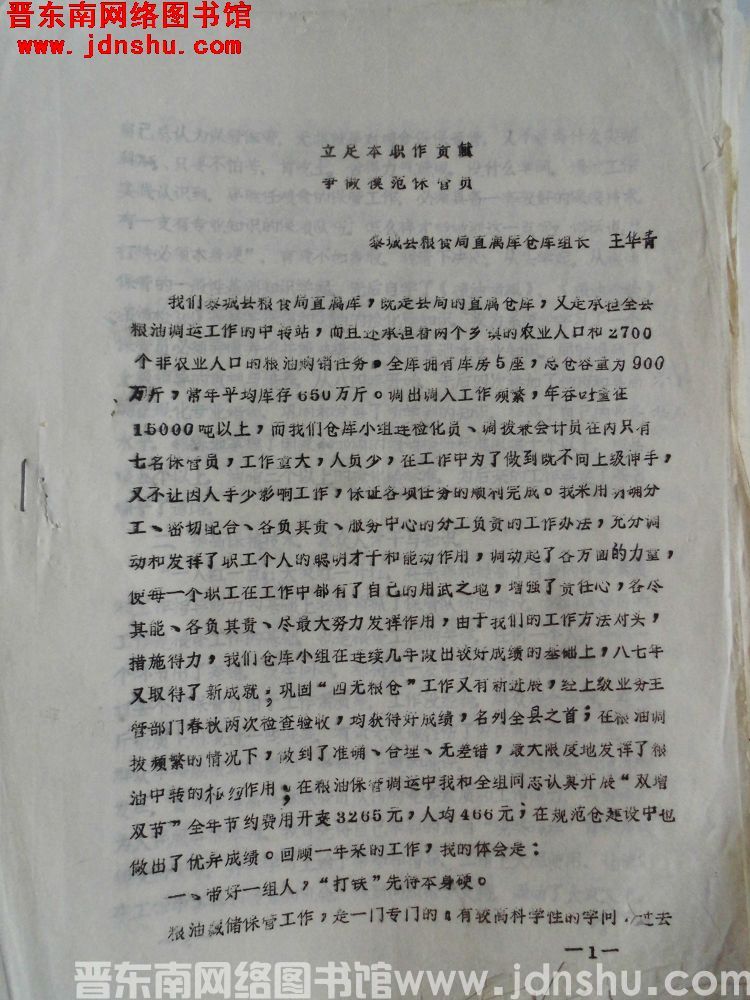 晋东南网络图书馆
www.jdnshu.com
立足本职作贡献
争做模范保管员
黎城县粮食局直属库仓库组长 王华青
我们黎城县粮食局直属库，既是县局的直属仓库，又是承担全县
粮油调运工作的中转站，而且还承担着两个乡镇的农业人口和2700
个非农业人口的粮油购销任务。全库拥有库房5座，总仓容量为900
万斤，常年平均库存650万斤。调出调入工作频繁，年吞吐量在
15000吨以上，而我们仓库小组连检化员、调拨兼会计员在内只有
七名保管员，工作量大，人员少，在工作中为了做到既不向上级伸手，
又不让因人手少影响工作，保证各项任务的顺利完成。我采用明确分
工、密切配合、各负其责、服务中心的分工负责的工作办法，充分调
动和发挥了职工个人的聪明才干和能动作用，调动起了各方面的力量，
使每一个职工在工作中都有了自己的用武之地，增强了责任心，各尽
其能、各负其责、尽最大努力发挥作用，由于我们的工作方法对头，
措施得力，我们仓库小组在连续几年做出较好成绩的基础上，八七年
又取得了新成就；巩固“四无粮仓”工作又有新进展，经上级业务主
管部门春秋两次检查验收，均获得好成绩，名列全县之首；在粮油调
拨频繁的情况下，做到了准确、合理、无差错，最大限度地发挥了粮
油中转的枢纽作用；在粮油保管调运中我和全组同志认真开展“双增
双节”全年节约费用开支3265元，人均466元；在规范仓建设中也
做出了优异成绩。回顾一年来的工作，我的体会是：
一、带好一组人，“打铁”先得本身硬。
粮油贮储保管工作，是一门专门的、有较高科学性的学问，过去
—1—
晋东南网络图书馆 www.jdnshu.com